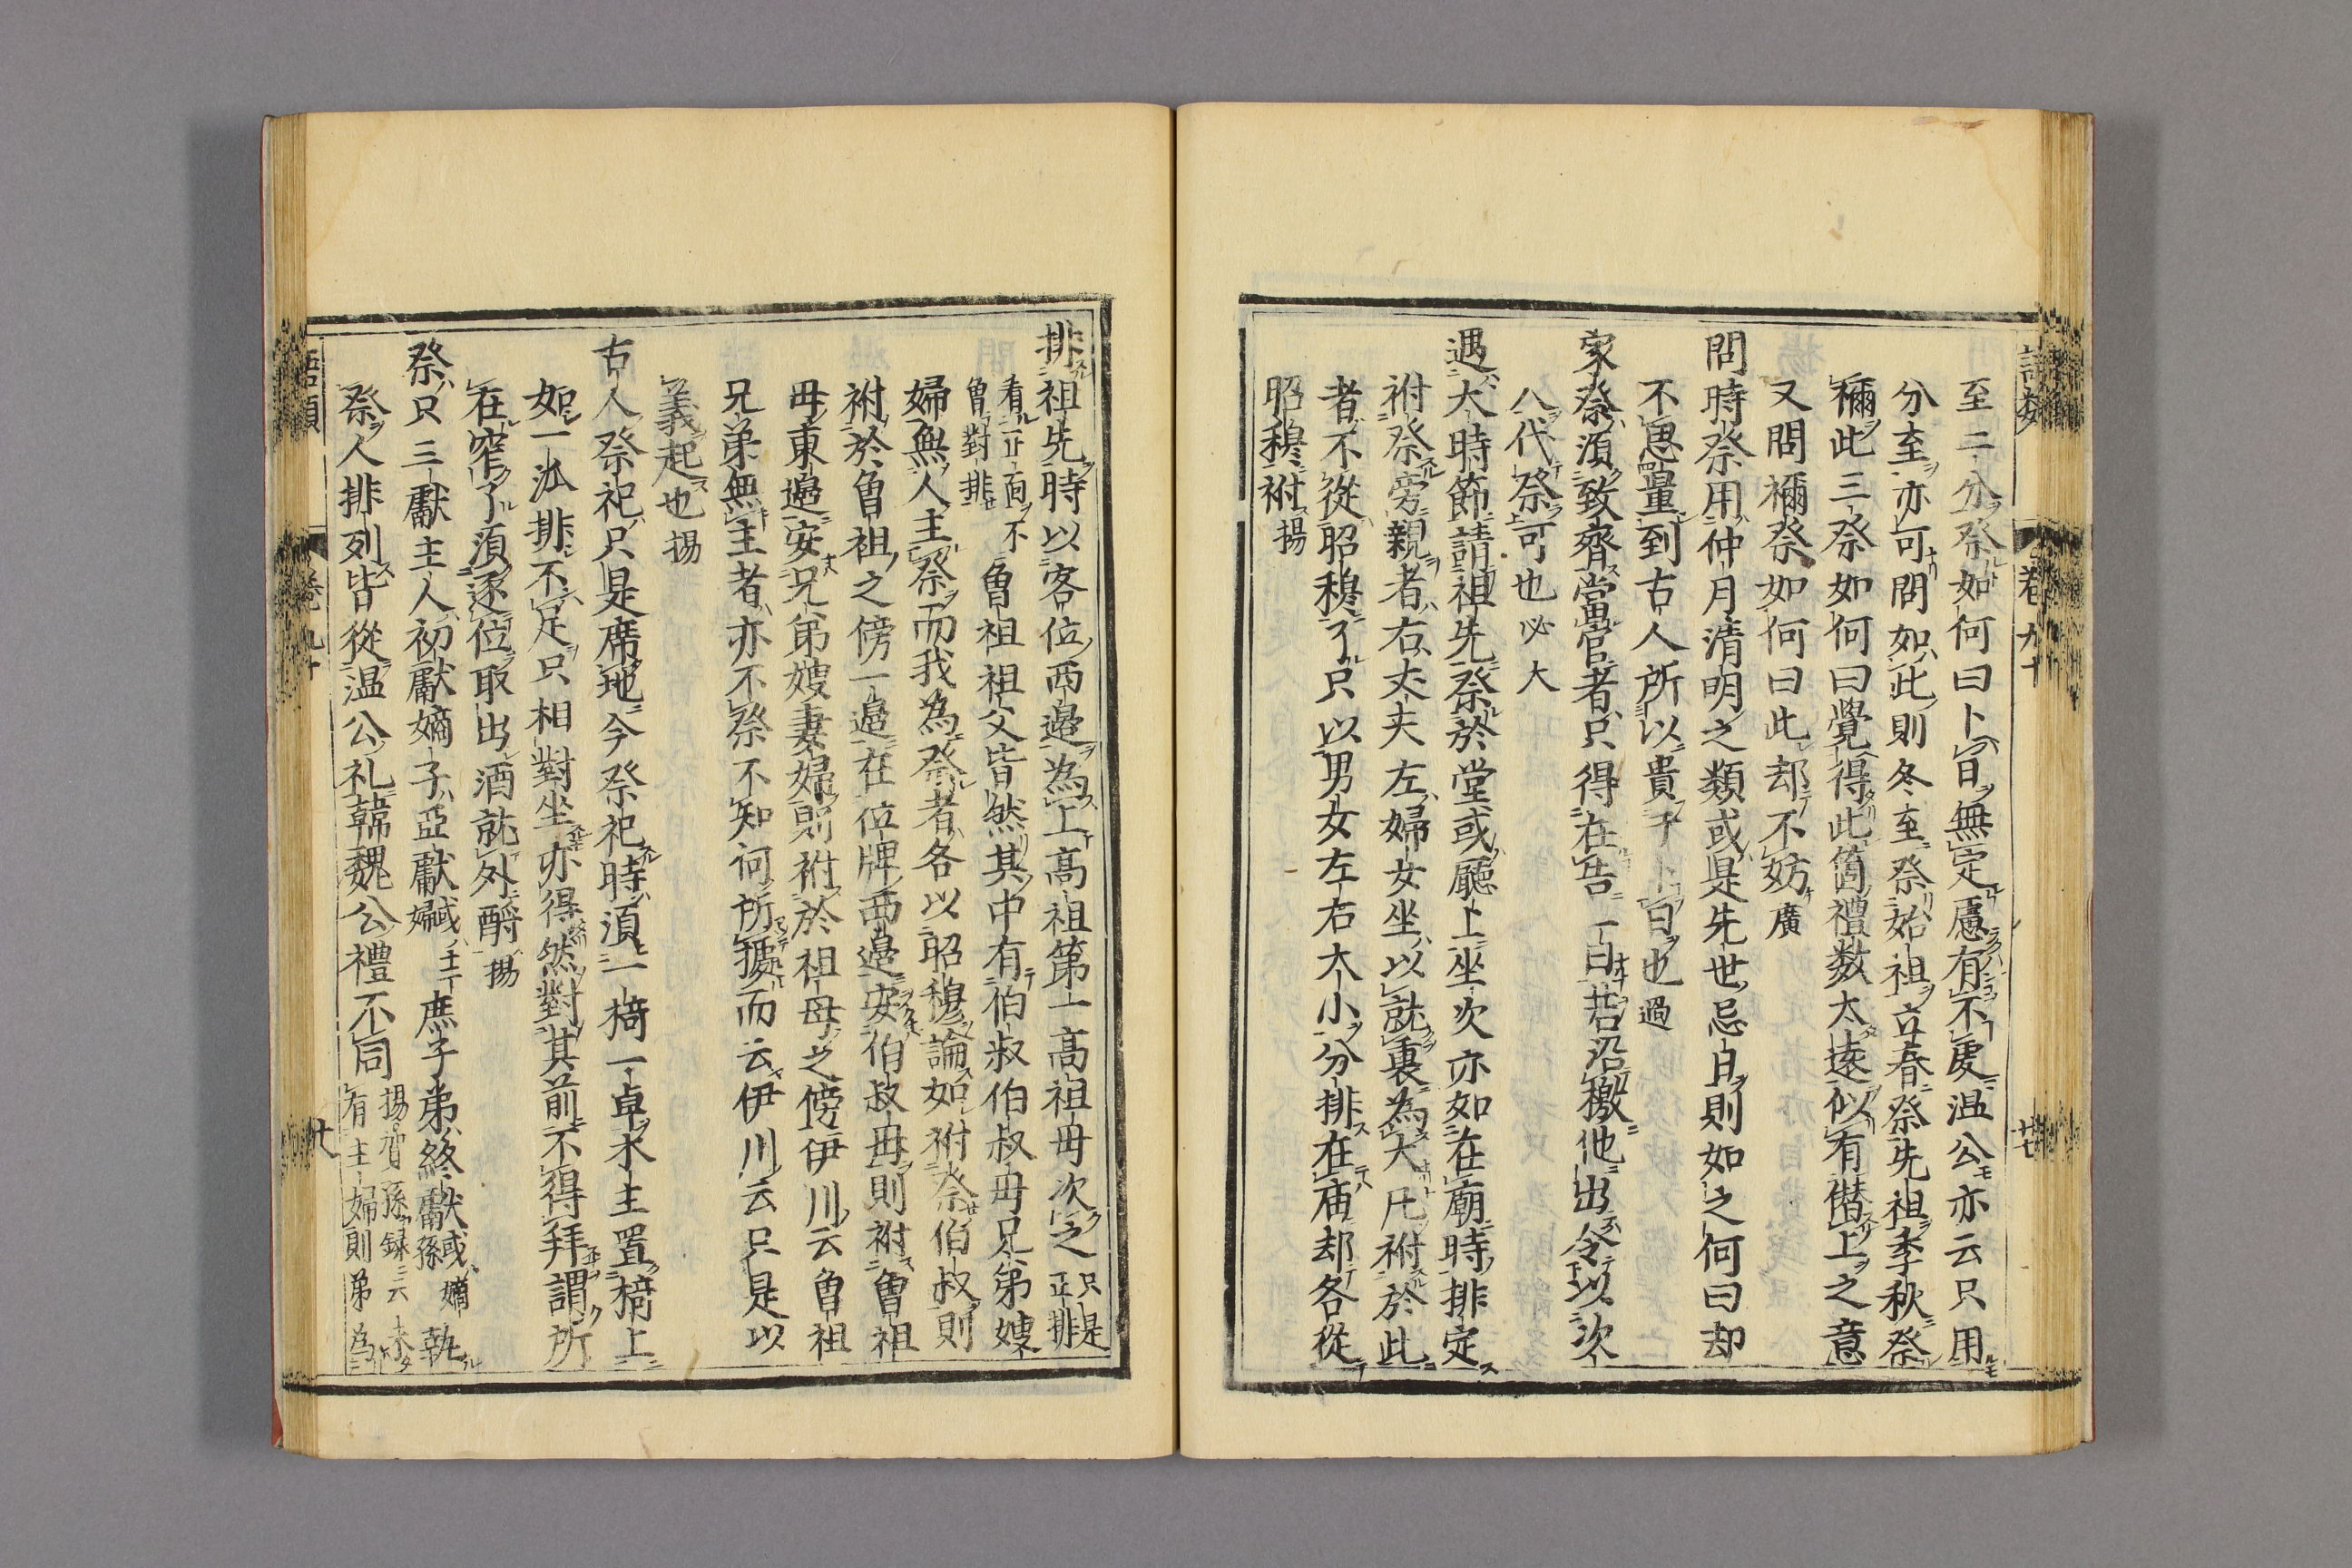 至二分祭如何曰卜日無定慮有不虔温公亦云只用
分至亦可問如此則冬至祭始祖立春祭先祖季秋祭
禰此三祭如何曰覺得此箇禮数太遠似有僣上之意
又問禰祭如何曰此却不妨廣
問時祭用仲月清明之類或是先世忌日則如之何曰却
不思量到古人所以貴于卜日也過
家祭須致齊當官者只得在告一日若沿檄他出令以次
人代祭可也必大
遇大時節請祖先祭於堂或廳上坐次亦如在廟時排定
祔祭旁親者右丈夫左婦女坐以就裏為大凡祔於此
者不從昭穆了只以男女左右大小分排在庙却各從
昭穆祔揚
排祖先時以客位西邉為上高祖第一高祖母次之只是正排
看正面不曾對排曽祖祖父皆然其中有伯叔伯叔母兄弟嫂
婦無人主祭而我為祭者各以昭穆論如祔祭伯叔則
祔於曽祖之傍一邉在位牌西邉安伯叔母則祔曽祖
母東邉安兄弟嫂妻婦則祔於祖母之傍伊川云曽祖
兄弟無主者亦不祭不知何所據而云伊川云只是以
義起也揚
古人祭祀只是席地今祭祀時須一椅一卓木主置椅上
如一派排不足只相對坐亦得然對其前不得拜謂所
在窄了須逐位取出酒就外酹揚
祭只三獻主人初獻嫡子亞獻或主婦庶子弟終獻或嫡孫執
祭人排列皆從温公礼韓魏公禮不同揚賀孫録云未有主婦則弟為
語類
卷九十
廿七